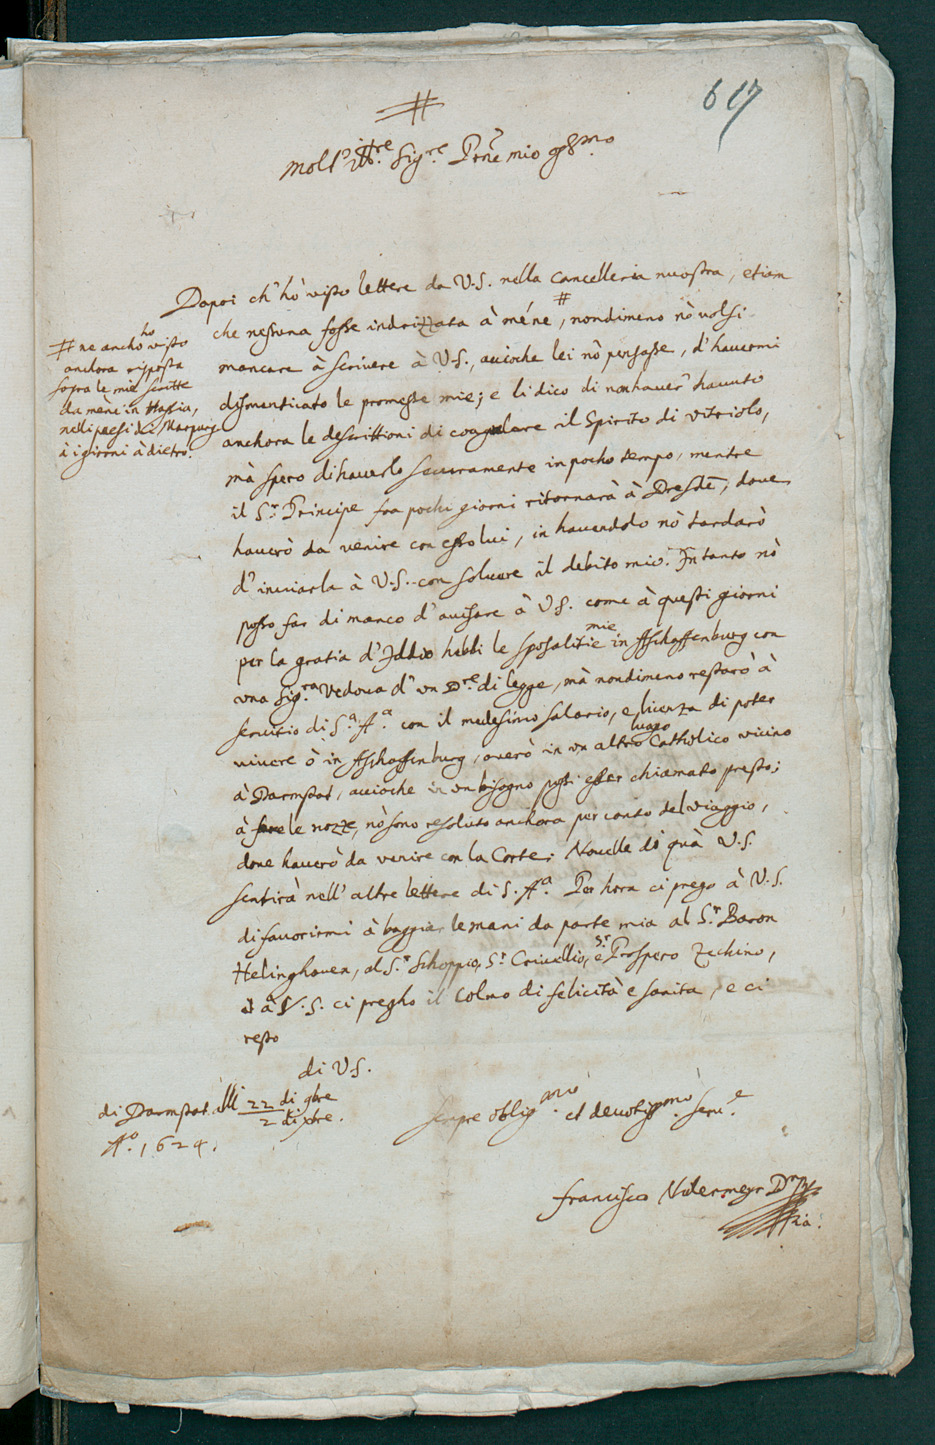 617
#
Molt.o ill.re Sig.re Pr̃ne mio oss.mo
Dapoi ch'hò visto lettere da V.S. nella cancelleria nuostra, etiam
che nessuna fosse indrizzata à méne #, nondimeno nõ volsi
mancare à scrivere à V.S., accioche lei nõ pensasse, d'havermi
dismenticato le promesse mie; e li dico di non haver havuto
anchora le descrittioni di coagulare il Spirito di vitriolo,
mà spero di haverlo securamente in pocho tempo, mentre
il S.r Principe fra pochi giorni ritornarà à Dresdẽ, dove
haverò da venire con esso lui, in havendolo nõ tardarò
d'inviarla à V.S. con solvere il debito mio. In tanto nõ
posso far di manco d'avisare à V.S. come à questi giorni
per la gratia d'Iddio hebbi le sposalitie mie in Aschaffenburg con
una Sig.ra Vedova d'un D.re di legge, mà nondimeno restarò à
servitio di S.a A.a con il medesimo salario, e licenza di poter
vivere ò in Aschaffenburg, overò in un altro luogo Catholico vicino
à Darmstat, accioche in un bisogno possi esser chiamato presto;
à fare le nozze, nò sono resoluto anchora per conto del viaggio,
dove haverò da venire con la Corte. Novelle di quà V.S.
sentirà nell'altre lettere di S. A.a Per hora ci prego à V.S.
di favorirmi à baggiar le mani da parte mia al S.r Baron
Helinghaven, al S.r Schoppio, S.r Crivellio, è S.r Prospero Zechino,
à V.S. ci pregho il Colmo di felicità e sanita, e ci
resto
di V.S.
# ne ancho ho visto
anchora risposta
sopra le mie scritte
da méne in Hassia,
nelli paesi di Marpurg
à i giorni à dietro.
di Darmstat alli 22 di 9bre
2 di Xbre.
A.o 1624.
sempre oblig.mo et devotiss.mo serv.e
Francisco Nidermeyr D.r